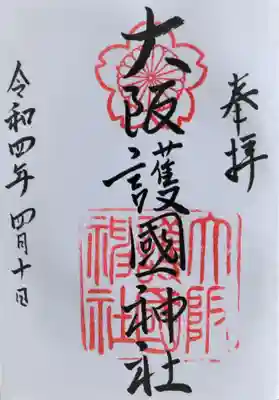 奉拝
大阪護國神社
大阪護國神社
令和四年 四月十日